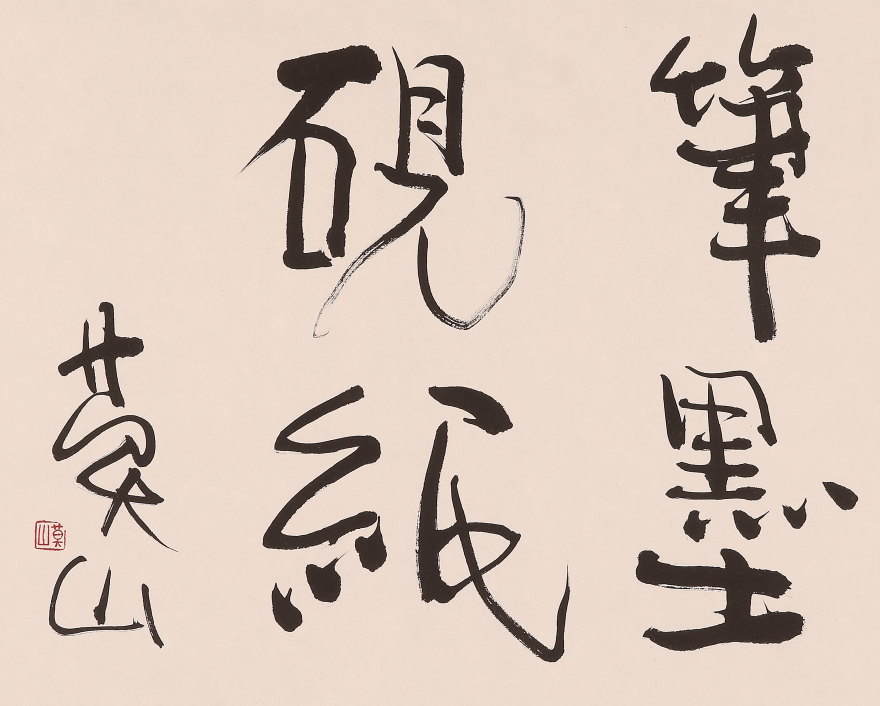 筆墨
硯紙
莫山
莫山